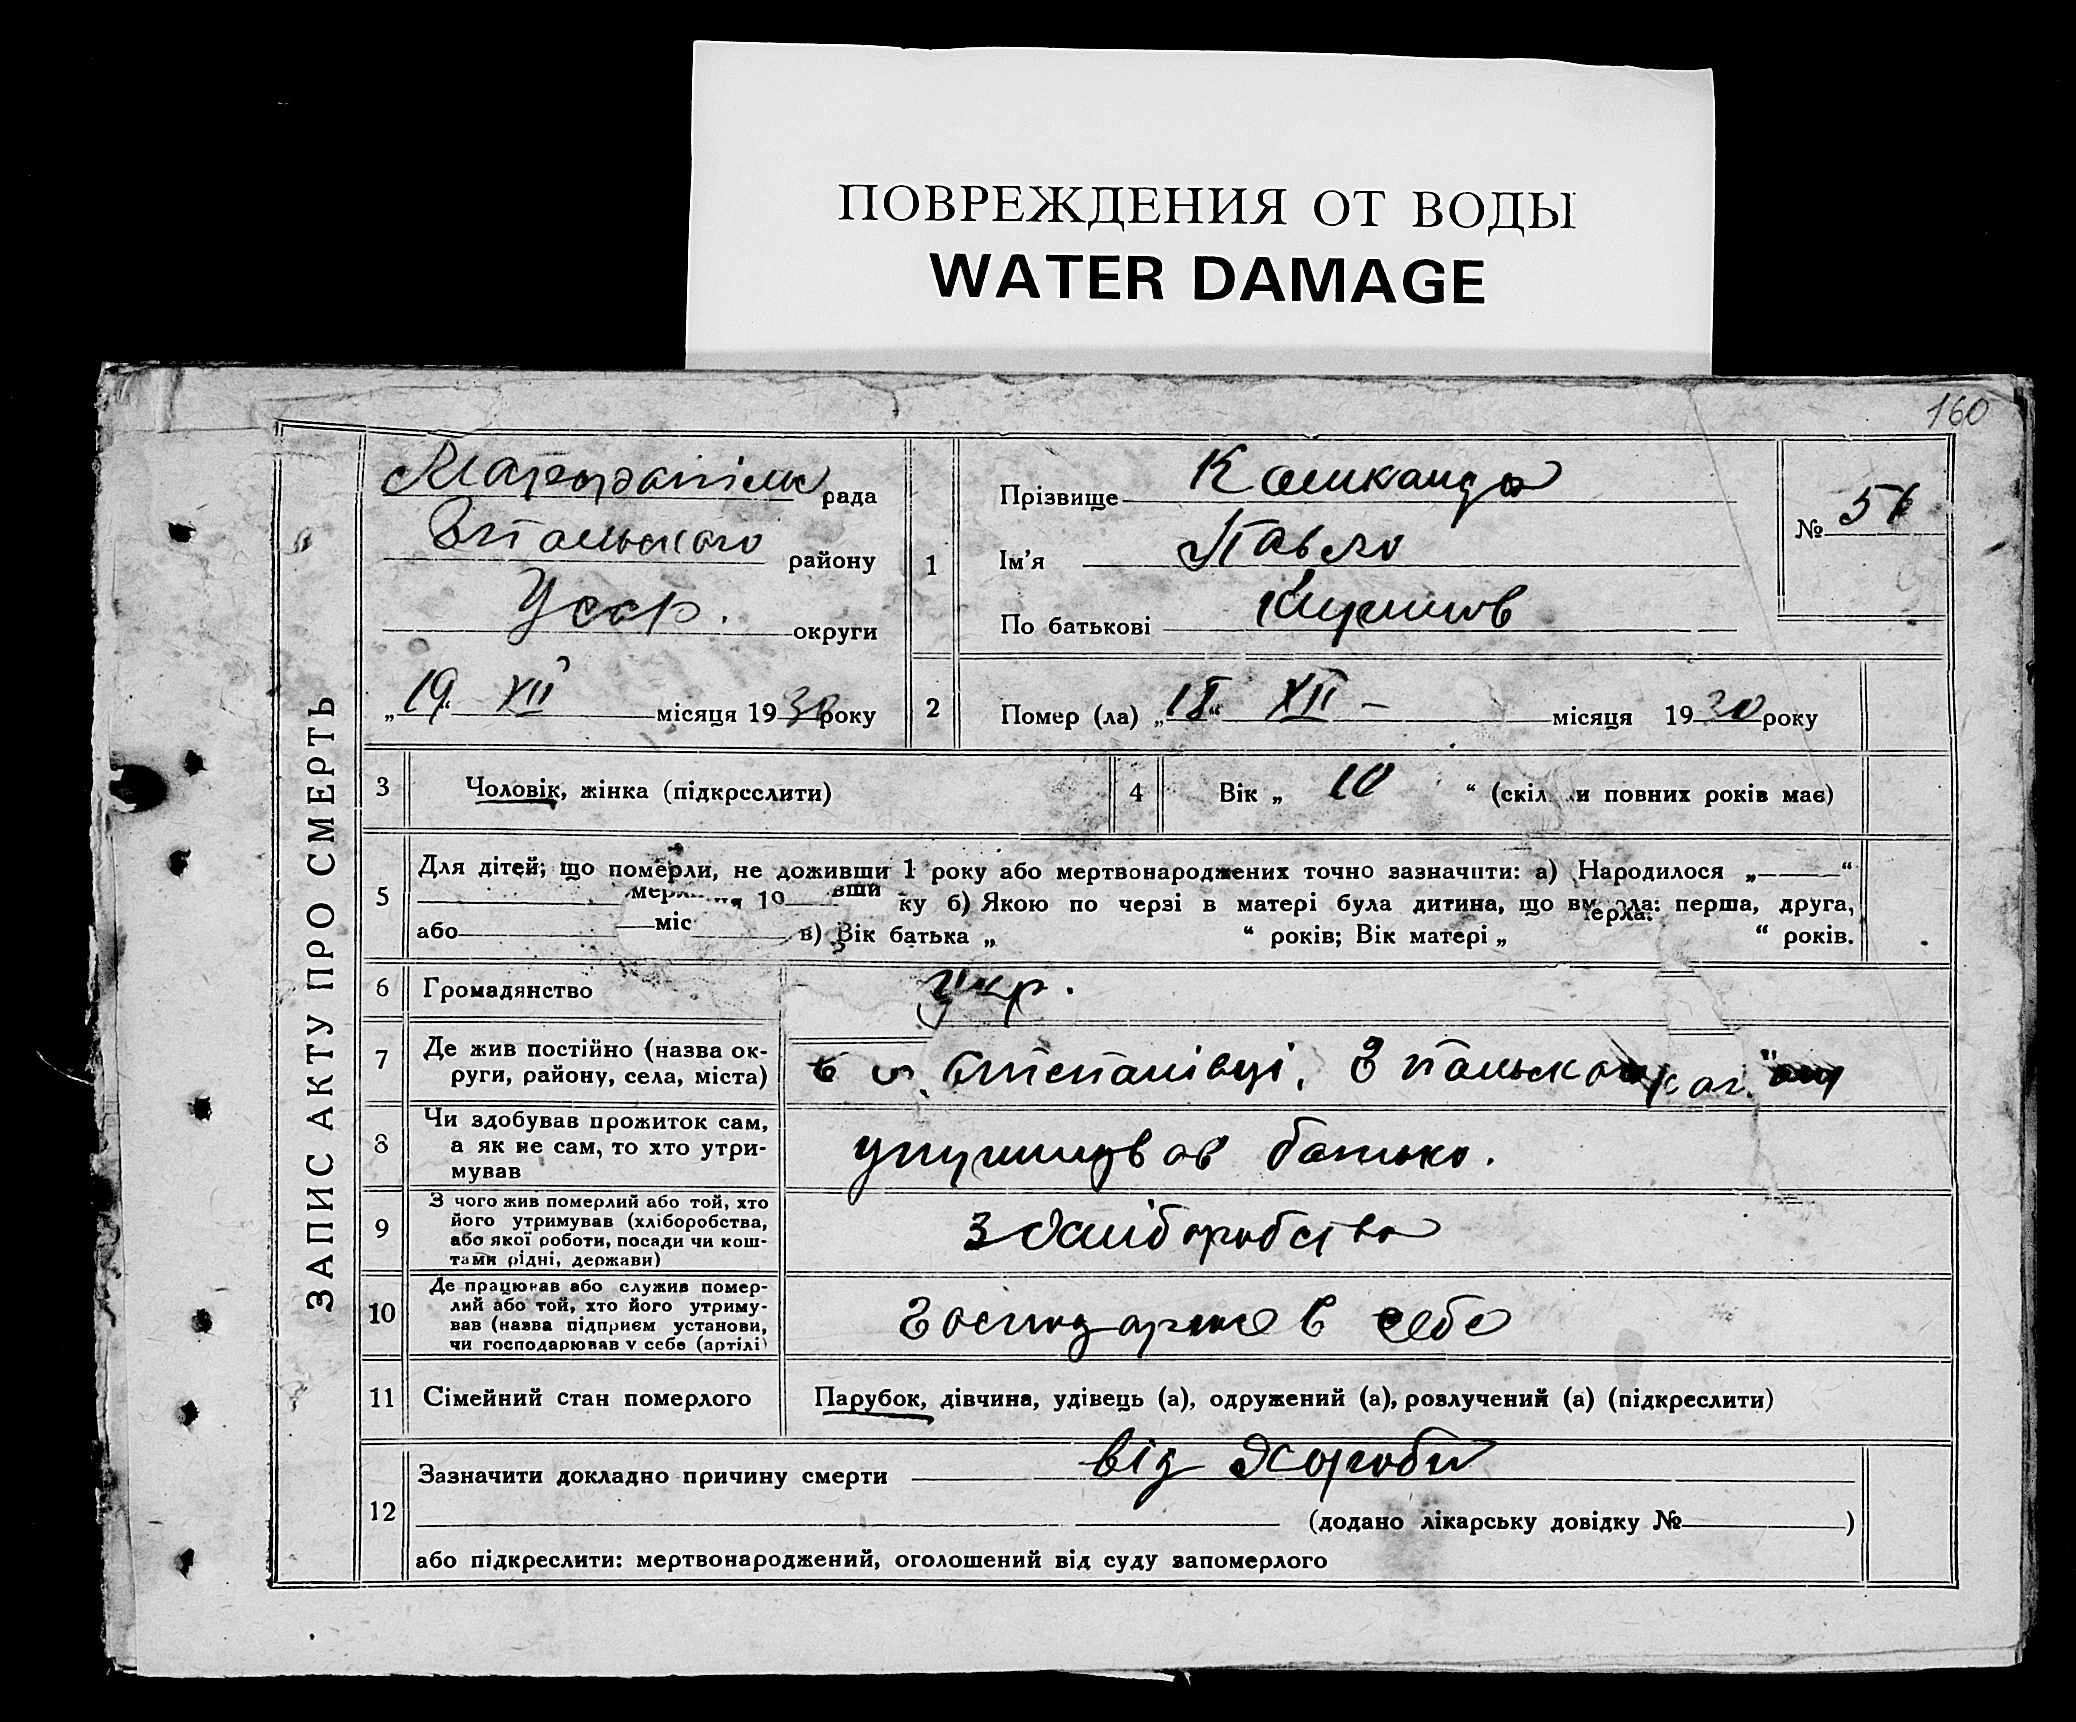 ПОВРЕЖДЕНИЯ ОТ ВОДЫ
WATER DAMAGE
160
ЗАПИС АКТУ ПРО СМЕРТЬ
рада
району
Усср. округи
„19“ XII місяця 1930 року
1
Прізвище
Ім'я Павло
По батькові
№ 56
2
Помер (ла) „18“ XII – місяця 1930 року
3 Чоловік, жінка (підкреслити)
4 Вік „ 10 “ (скіл и повних років має)
5 Для дітей; що померли, не доживши 1 року або мертвонароджених точно зазначити: а) Народилося „ “
ку б) Якою по черзі в матері була дитина, що перша, друга,
або міс в) Вік батька „ “ років; Вік матері „ “ років.
6 Громадянство Укр.
7 Де жив постійно (назва ок-
руги, району, села, міста)
в с. Степанівці,
8 Чи здобував прожиток сам,
а як не сам, то хто утри-
мував
утримував батько.
9 З чого жив померлий або той, хто
його утримував (хліборобства,
або якої роботи, посади чи кош-
тами рідні, держави)
З хліборобства
10 Де працював або служив помер-
лий або той, хто його утриму-
вав (назва підприєм установи,
чи господарював у себе (артілі)
в себе
11 Сімейний стан померлого Парубок, дівчина, удівець (а), одружений (а), розлучений (а) (підкреслити)
12 Зазначити докладно причину смерти від хороби
(додано лікарську довідку № )
або підкреслити: мертвонароджений, оголошений від суду запомерлого